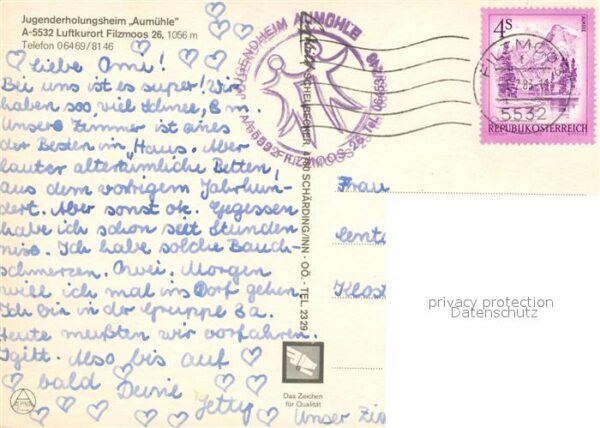 Jugenderholungsheim „Aumühle"
A-5532 Luftkurort Filzmoos 26, 1056 m
Telefon 06469/8146
Liebe Omi!
Bei uns ist es super! Wir
haben soo viel Schnee, 8 m.
Unsere Zimmer ist eines
der Besten im „Haus. Aber
lauter altertümliche Betten,
aus dem vorrigem Jahrhun-
dert. Aber sonst ok. Gegessen
habe ich schon seit Stunden
nix. Ich habe solche Bauch-
schmerzen. Owei. Morgen
will ich mal ins Dorf gehen.
Ich bin in der Gruppe 3a.
Heute mußten wir vorfahren.
Igitt. Also bis auf
bald Deine
Jetty
Unser Zi
JUGENDHEIM AUMÜHLE
A-5532 FILZMOOS 26, Tel. 06453/
SCHÄRDING/INN - OÖ. - TEL. 2329
4S
FILZMOOS
5532
REPUBLIK ÖSTERREICH
Frau
Klost
privacy protection
Datenschutz
Das Zeichen
für Qualität